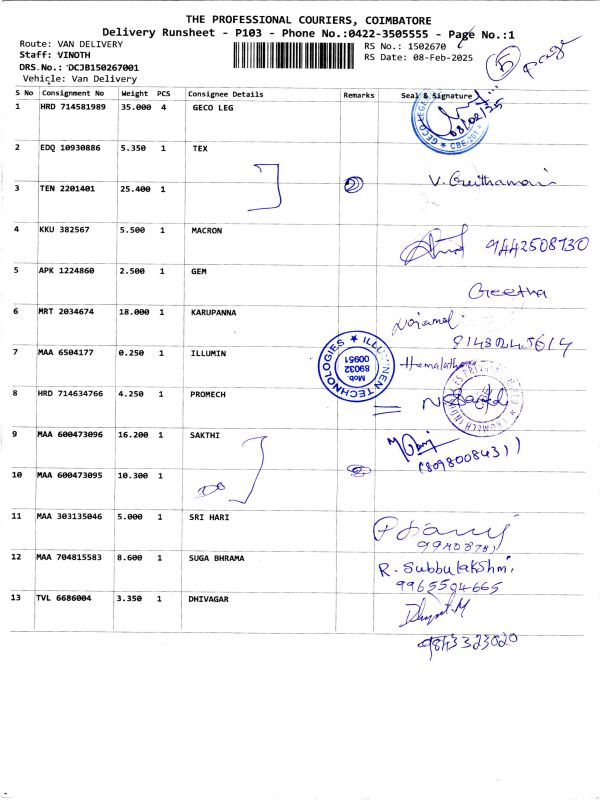 THE PROFESSIONAL COURIERS, COIMBATORE
Delivery Runsheet - P103 - Phone No.:0422-3505555 - Page No.:1
Route: VAN DELIVERY
RS No.: 1502670
Staff: VINOTH
RS Date: 08-Feb-2025
DRS.No.: DCJB150267001
Vehicle: Van Delivery
5
S No Consignment No Weight PCS Consignee Details Remarks Seal & Signature
1 HRD 714581989 35.000 4 GECO LEG
08/02/25
2 EDQ 10930886 5.350 1 TEX
3 TEN 2201401 25.400 1 2
4 KKU 382567 5.500 1 MACRON
9442508730
5 APK 1224860 2.500 1 GEM Geetha
6 MRT 2034674 18.000 1 KARUPANNA
7 MAA 6504177 0.250 1 ILLUMIN
ILLUMINEN TECHNOLOGIES
Mob:
89032
00951
Hemalatha
8 HRD 714634766 4.250 1 PROMECH
9 MAA 600473096 16.200 1 SAKTHI
10 MAA 600473095 10.300 1
11 MAA 303135046 5.000 1 SRI HARI
12 MAA 704815583 8.600 1 SUGA BHRAMA R. Subbulakshmi
9965594665
13 TVL 6686004 3.350 1 DHIVAGAR
9843323020